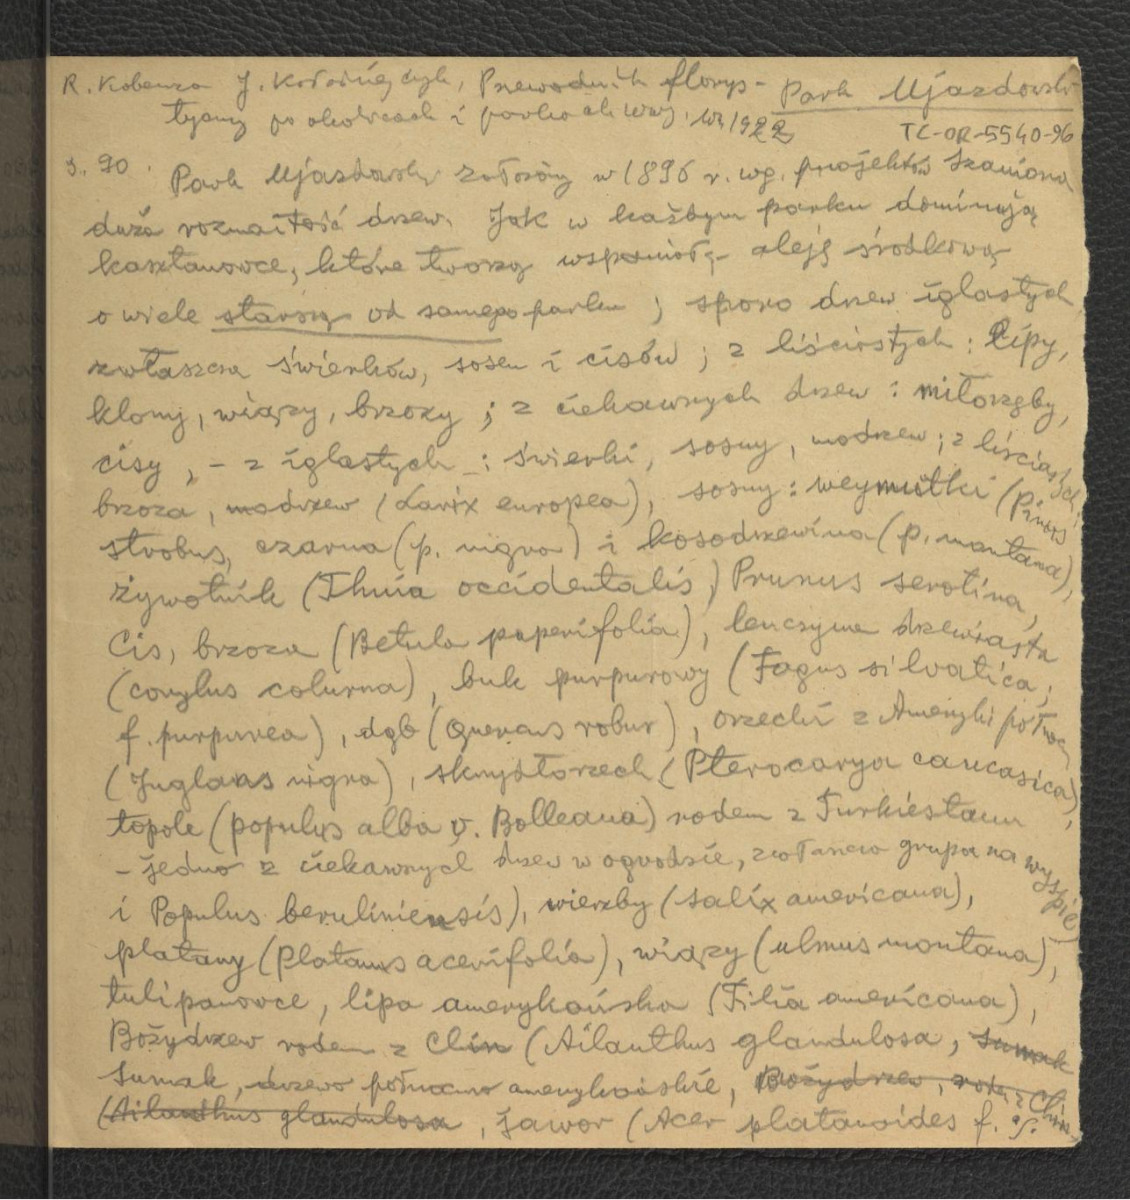 R. Kobenza J. Kołodziejczyk, Przewodnik florys-
Park Ujazdowski
tyczny po okolicach i parkach Warsz. W. 1922
TC-OR-5540-96
s. 90. Park Ujazdowski założony w 1896 r. wg. projektów Szaniora
duża rozmaitość drzew. Jak w każdym parku dominują
kasztanowce, które tworzą wspaniałą aleję środkową
o wiele starszą od samego parku ; sporo drzew iglastych
zwłaszcza świerków, sosen i cisów ; z liściastych : lipy,
klony, wiązy, brzozy ; z ciekawszych drzew : miłorzęby,
cisy, - z iglastych : świerki, sosny, modrzew ; z liściastych :
brzoza, modrzew (Larix europea), sosny : weymutki (Pinus
strobus, czarna (p. nigra) i kosodrzewina (p. montana),
żywotnik (Thuia occidentalis) Prunus serotina,
Cis, brzoza (Betula paperifolia), leszczyna drzewiasta
(corylus colurna), buk purpurowy (Fagus silvatica,
f. purpurea), dąb (Quercus robur), orzechi z Ameryki północ
(Juglans nigra), skrzydłorzech (Pterocarya caucasica),
topole (populus alba v. Bolleana) rodem z Turkiestanu
- jedno z ciekawszych drzew w ogrodzie, zwłaszcza grupa na wyspie
i Populus beruliniensis), wierzby (salix americana),
platany (Platanus acerifolia), wiązy (ulmus montana),
tulipanowce, lipa amerykańska (Tilia americana),
Bożydrzew rodem z Chin (Ailanthus glandulosa, sumak
Sumak, drzewo północno amerykańskie, Bożydrzew, rodem z Chin
(Ailanthus glandulosa, jawor (Acer platanoides f.